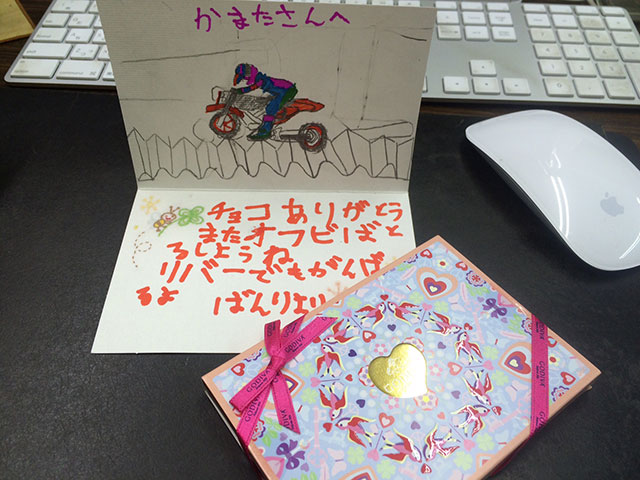 かまたさんへ
チョコ ありがとう
またオフビばと
ろしようね
リバーでもがんば
るよ ばんりより
GODIVA
GODIVA